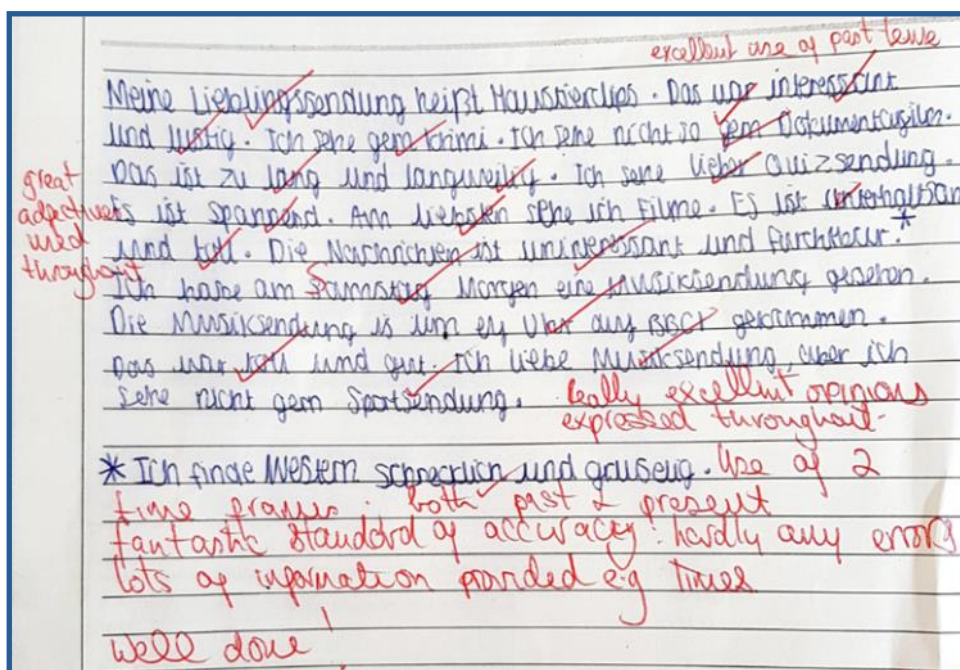 excellent use of past tense
Meine Lieblingssendung heißt Haustierclips. Das war interessant
und lustig. Ich sehe gern Krimi. Ich sehe nicht so gern Dokumentarfilm.
Das ist zu lang und langweilig. Ich sehe lieber Quizsendung.
great
adjectives
used
throughout
Es ist spannend. Am liebsten sehe ich Filme. Es ist unterhaltsam
und toll. Die Nachrichten ist uninteressant und furchtbar.*
Ich habe am Samstag Morgen eine Musiksendung gesehen.
Die Musiksendung is um elf Uhr auf BBC1 gekommen.
Das war toll und gut. Ich liebe Musiksendung, aber ich
sehe nicht gern Sportsendung. Really excellent opinions
expressed throughout-
* Ich finde Western schrecklich und gruselig. Use of 2
time frames. both past & present
fantastic standard of accuracy! hardly any errors
lots of information provided e.g times
Well done!